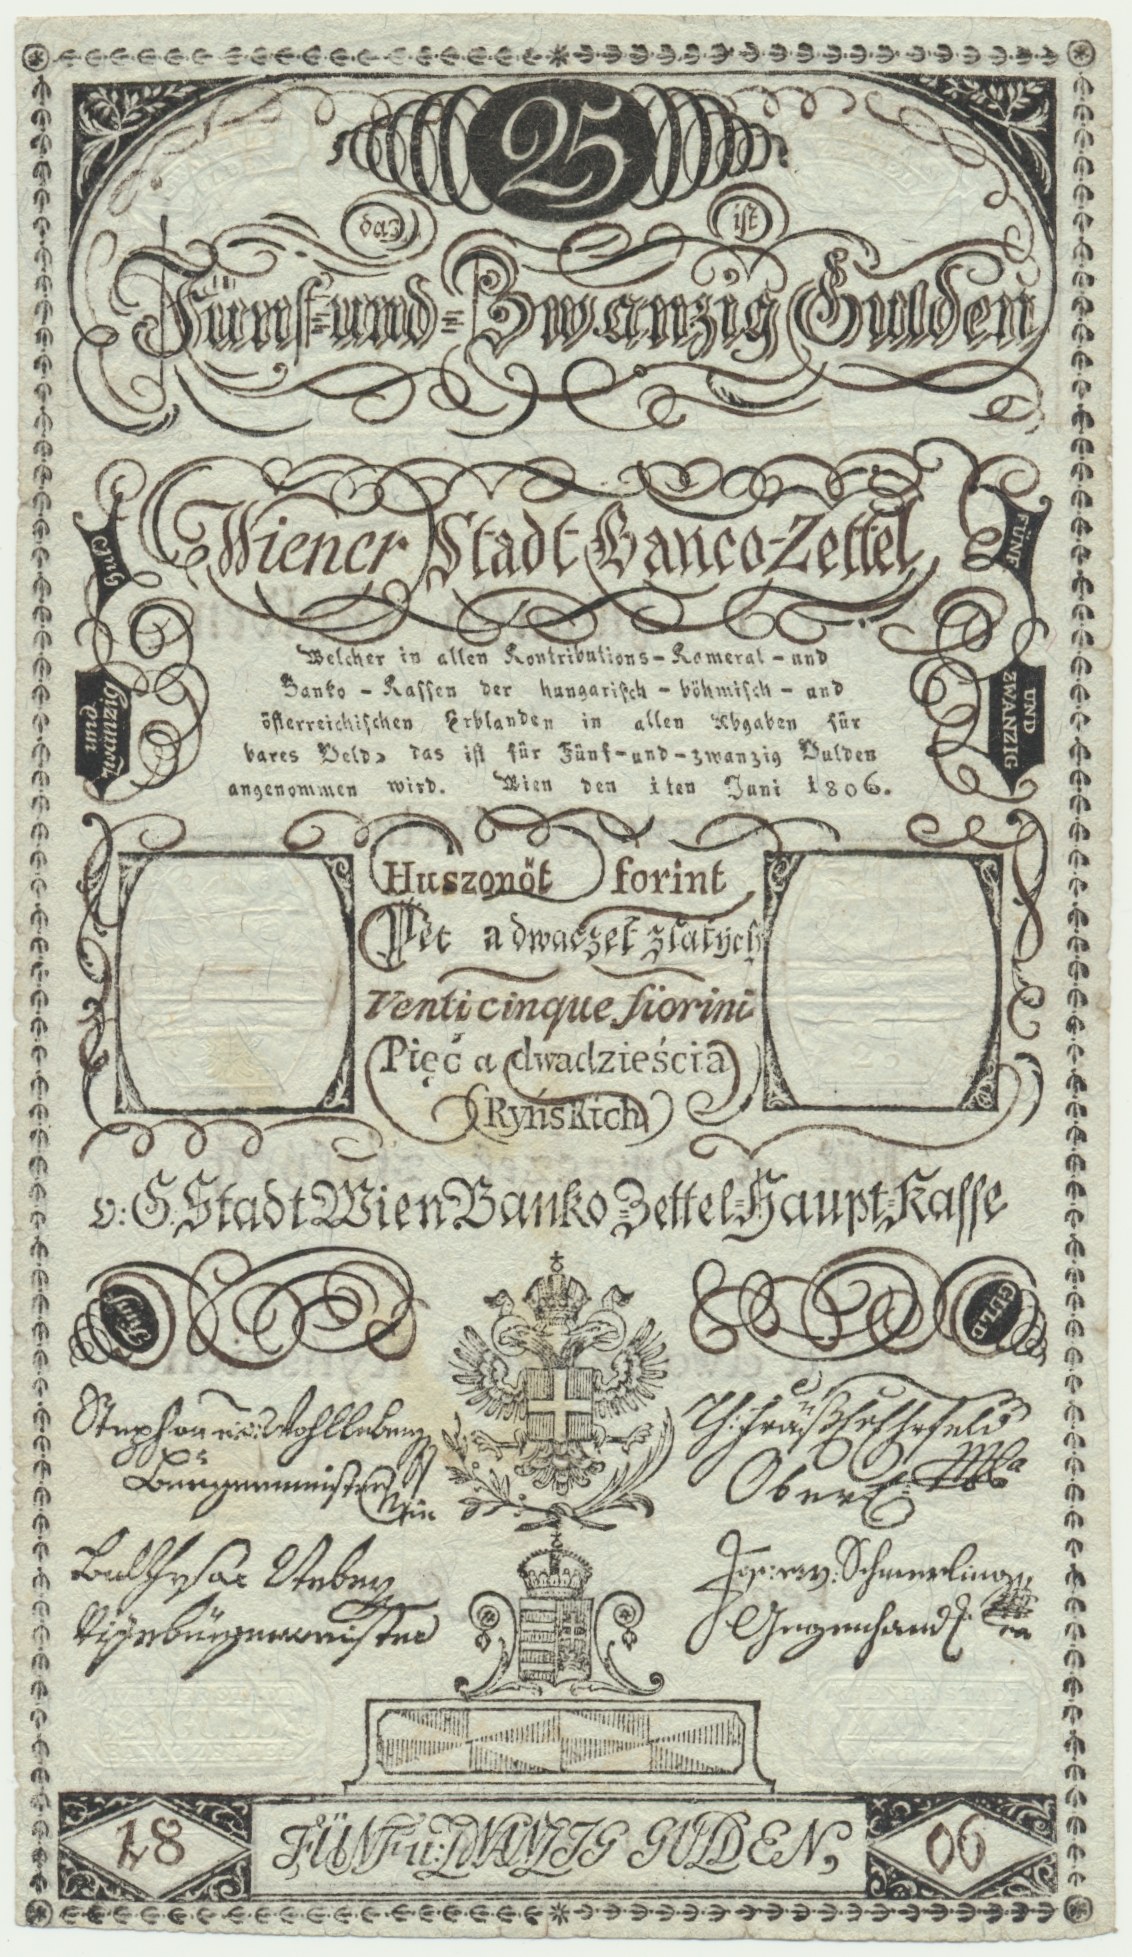 25
das ist
Fünf-und-Zwanzig Gulden
Wiener Stadt Banco-Zettel
FÜNF
Welcher in allen Kontributions-Kameral-und
Banko-Kassen der hungarisch-böhmisch-und
österreichischen Erblanden in allen Abgaben für
bares Geld, das ist für Fünf-und-zwanzig Gulden
angenommen wird. Wien den 1ten Juni 1806.
und zwanzig
UND ZWANZIG
Huszonöt forint
Pět a dwaczet zlatých
Venticinque fiorini
Pięć a dwadzieścia
Ryńskich
v: G. Stadt Wien Banko Zettel-Haupt-Kasse
GULD
Stephan
Burgermeister
Vizebürgermeister
v: Schmerling
FÜNF u: ZWANZIG GULDEN,
18
06